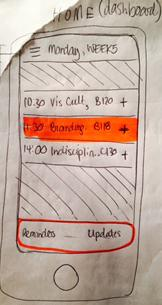 HOME (dashboard)
Monday, WEEK5
10.30 Vis Cult, B120 +
11.30 Branding, B118 +
14:00 Indisciplin.. C130 +
Reminders — Updates